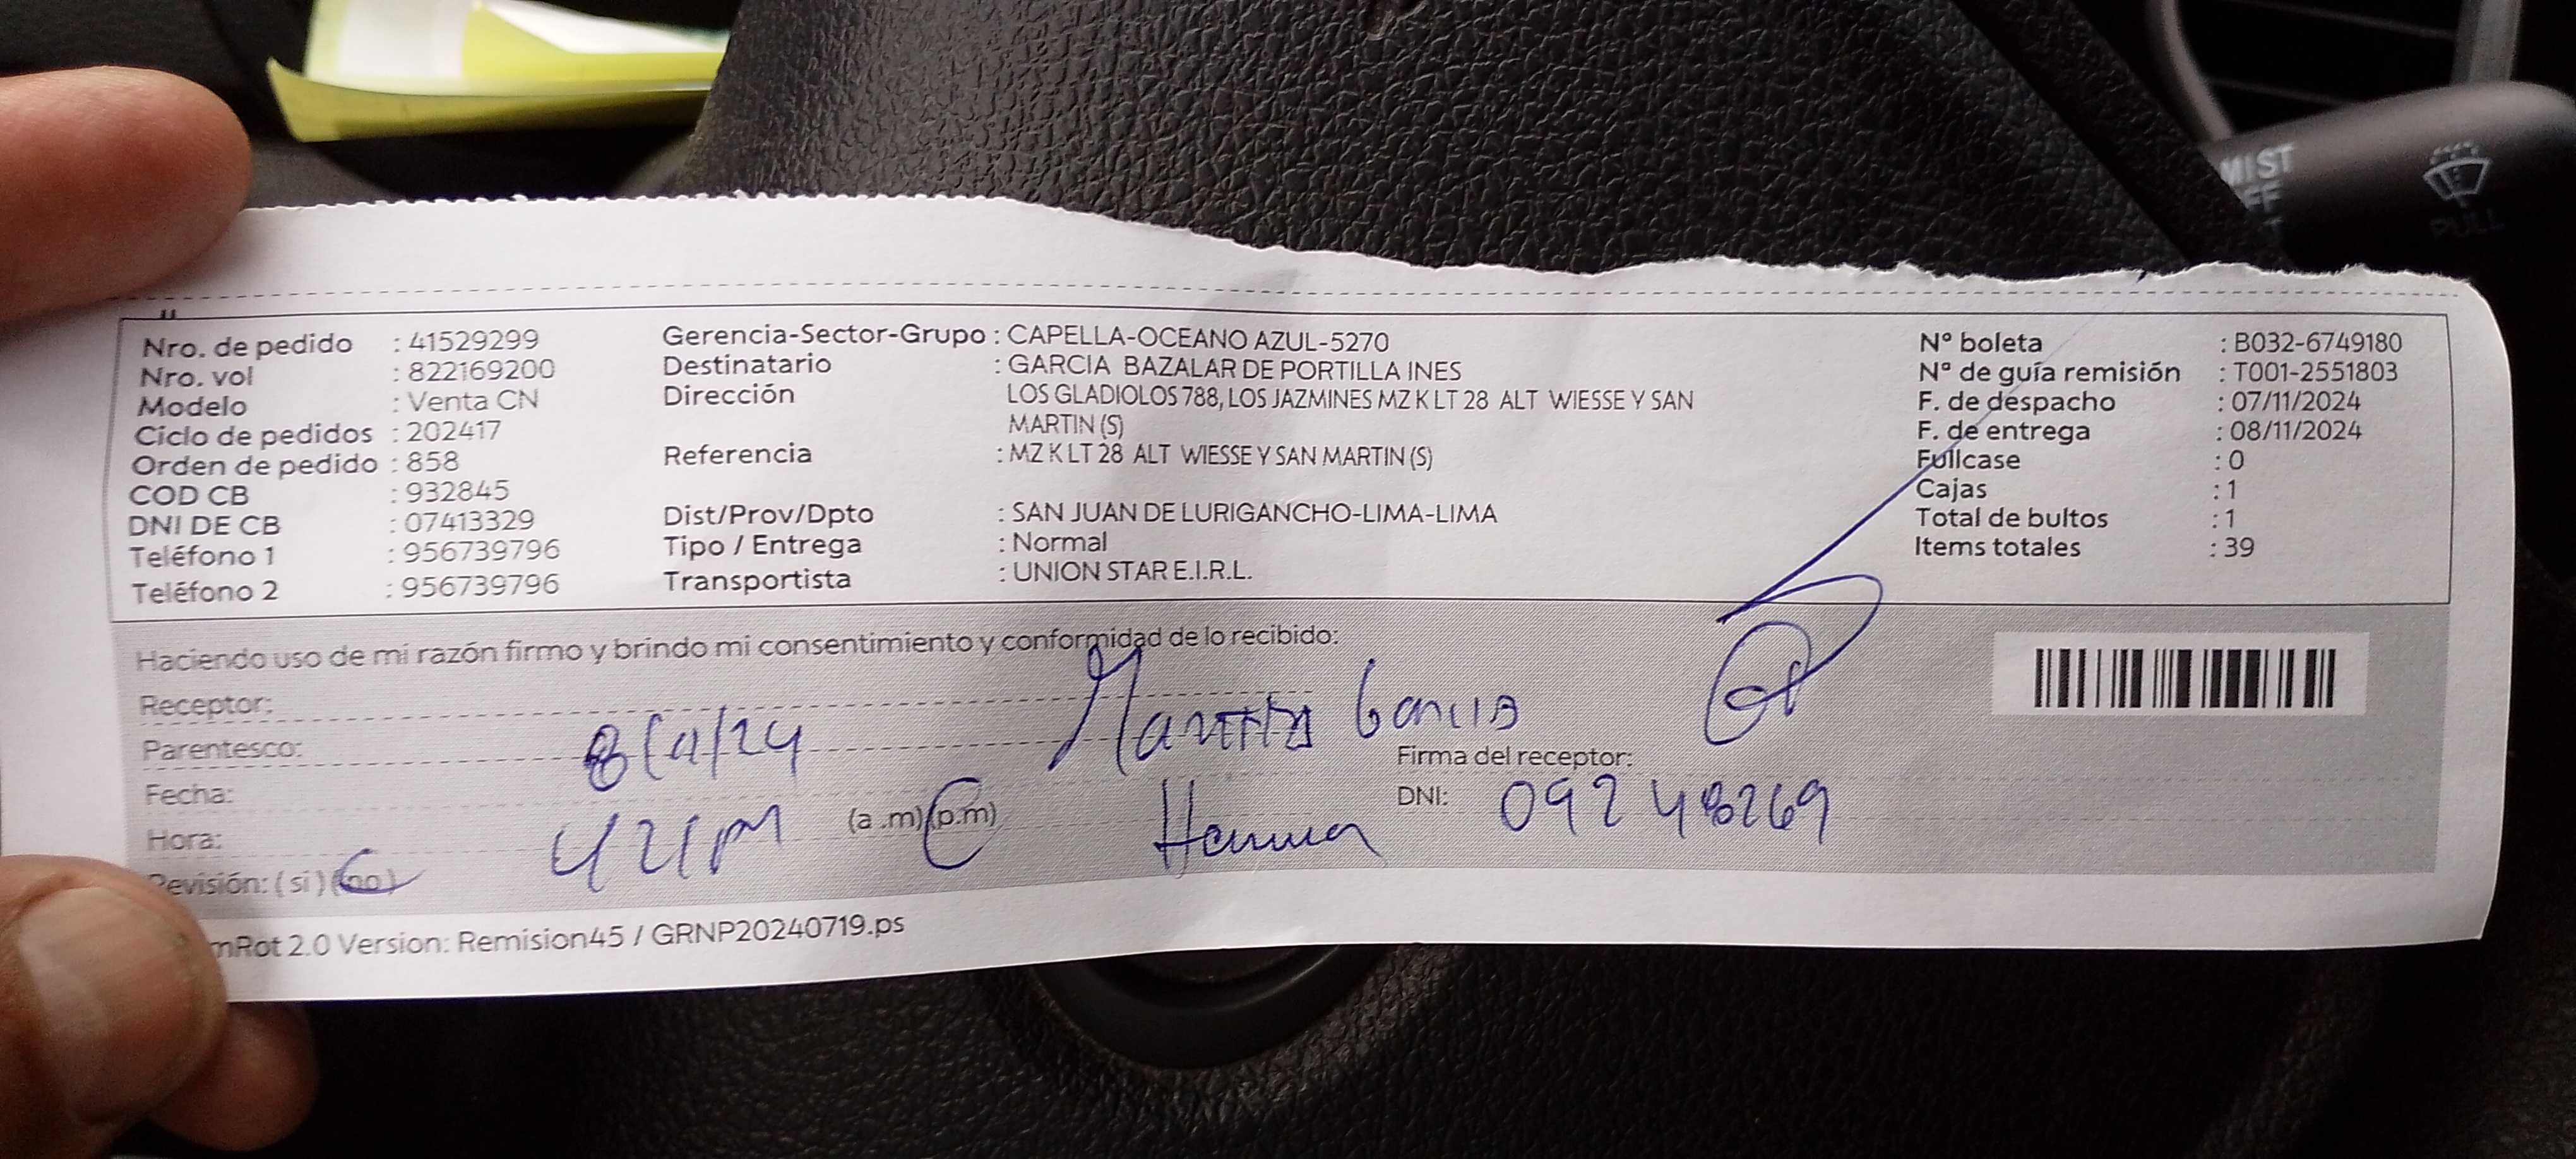 Nro. de pedido : 41529299
Nro. vol : 822169200
Modelo : Venta CN
Ciclo de pedidos : 202417
Orden de pedido : 858
COD CB : 932845
DNI DE CB : 07413329
Teléfono 1 : 956739796
Teléfono 2 : 956739796
Gerencia-Sector-Grupo : CAPELLA-OCEANO AZUL-5270
Destinatario : GARCIA BAZALAR DE PORTILLA INES
Dirección LOS GLADIOLOS 788, LOS JAZMINES MZ K LT 28 ALT WIESSE Y SAN
MARTIN (S)
Referencia : MZ K LT 28 ALT WIESSE Y SAN MARTIN (S)
Dist/Prov/Dpto : SAN JUAN DE LURIGANCHO-LIMA-LIMA
Tipo / Entrega : Normal
Transportista : UNION STAR E.I.R.L.
N° boleta : B032-6749180
N° de guía remisión : T001-2551803
F. de despacho : 07/11/2024
F. de entrega : 08/11/2024
Fullcase : 0
Cajas : 1
Total de bultos : 1
Items totales : 39
Haciendo uso de mi razón firmo y brindo mi consentimiento y conformidad de lo recibido:
Receptor: Garcia
Parentesco:
Fecha: 8/11/24
Hora: 421pm (a .m) (p.m)
Revisión: ( si ) (no)
Firma del receptor:
DNI: 09248269
mRot 2.0 Version: Remision45 / GRNP20240719.ps
MIST
PULL